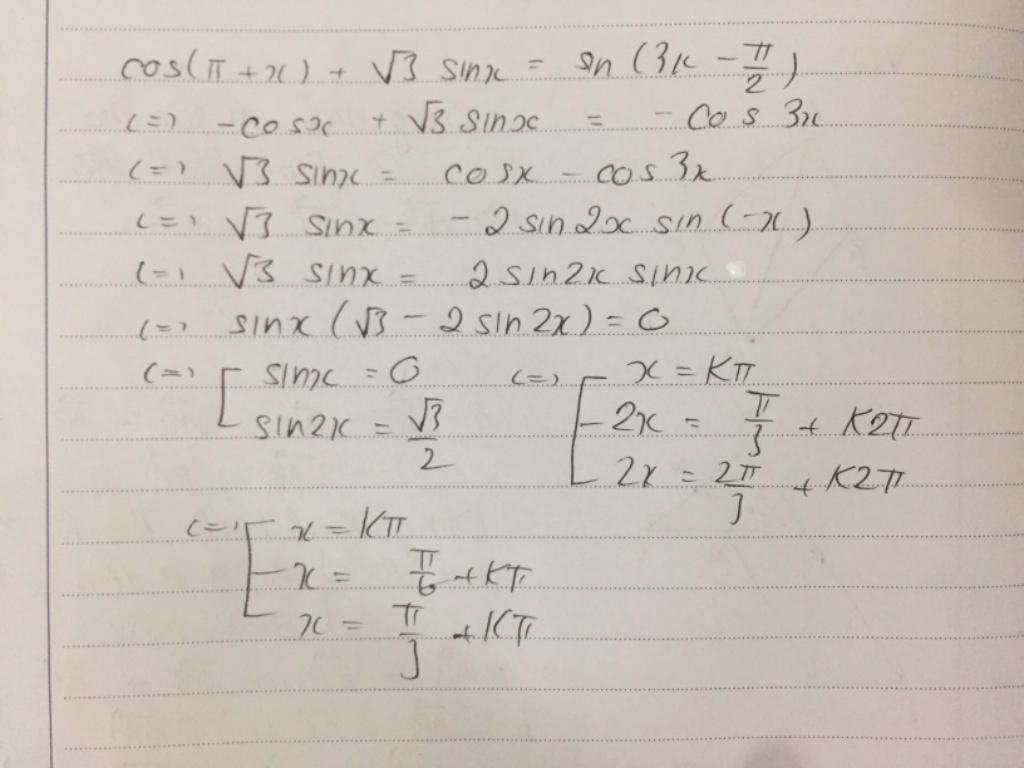 cos(π + x) + √3 sinx = sin (3x - π/2)
(=) -cosx + √3 sinx = - cos 3x
(=) √3 sinx = cosx - cos 3x
(=) √3 sinx = -2 sin 2x sin (-x)
(=) √3 sinx = 2 sin2x sinx
(=) sinx (√3 - 2 sin 2x) = 0
(=) [ sinx = 0 (=) [ x = Kπ
sin2x = √3/2 2x = π/3 + K2π
2x = 2π/3 + K2π
(=) [ x = Kπ
x = π/6 + Kπ
x = π/3 + Kπ